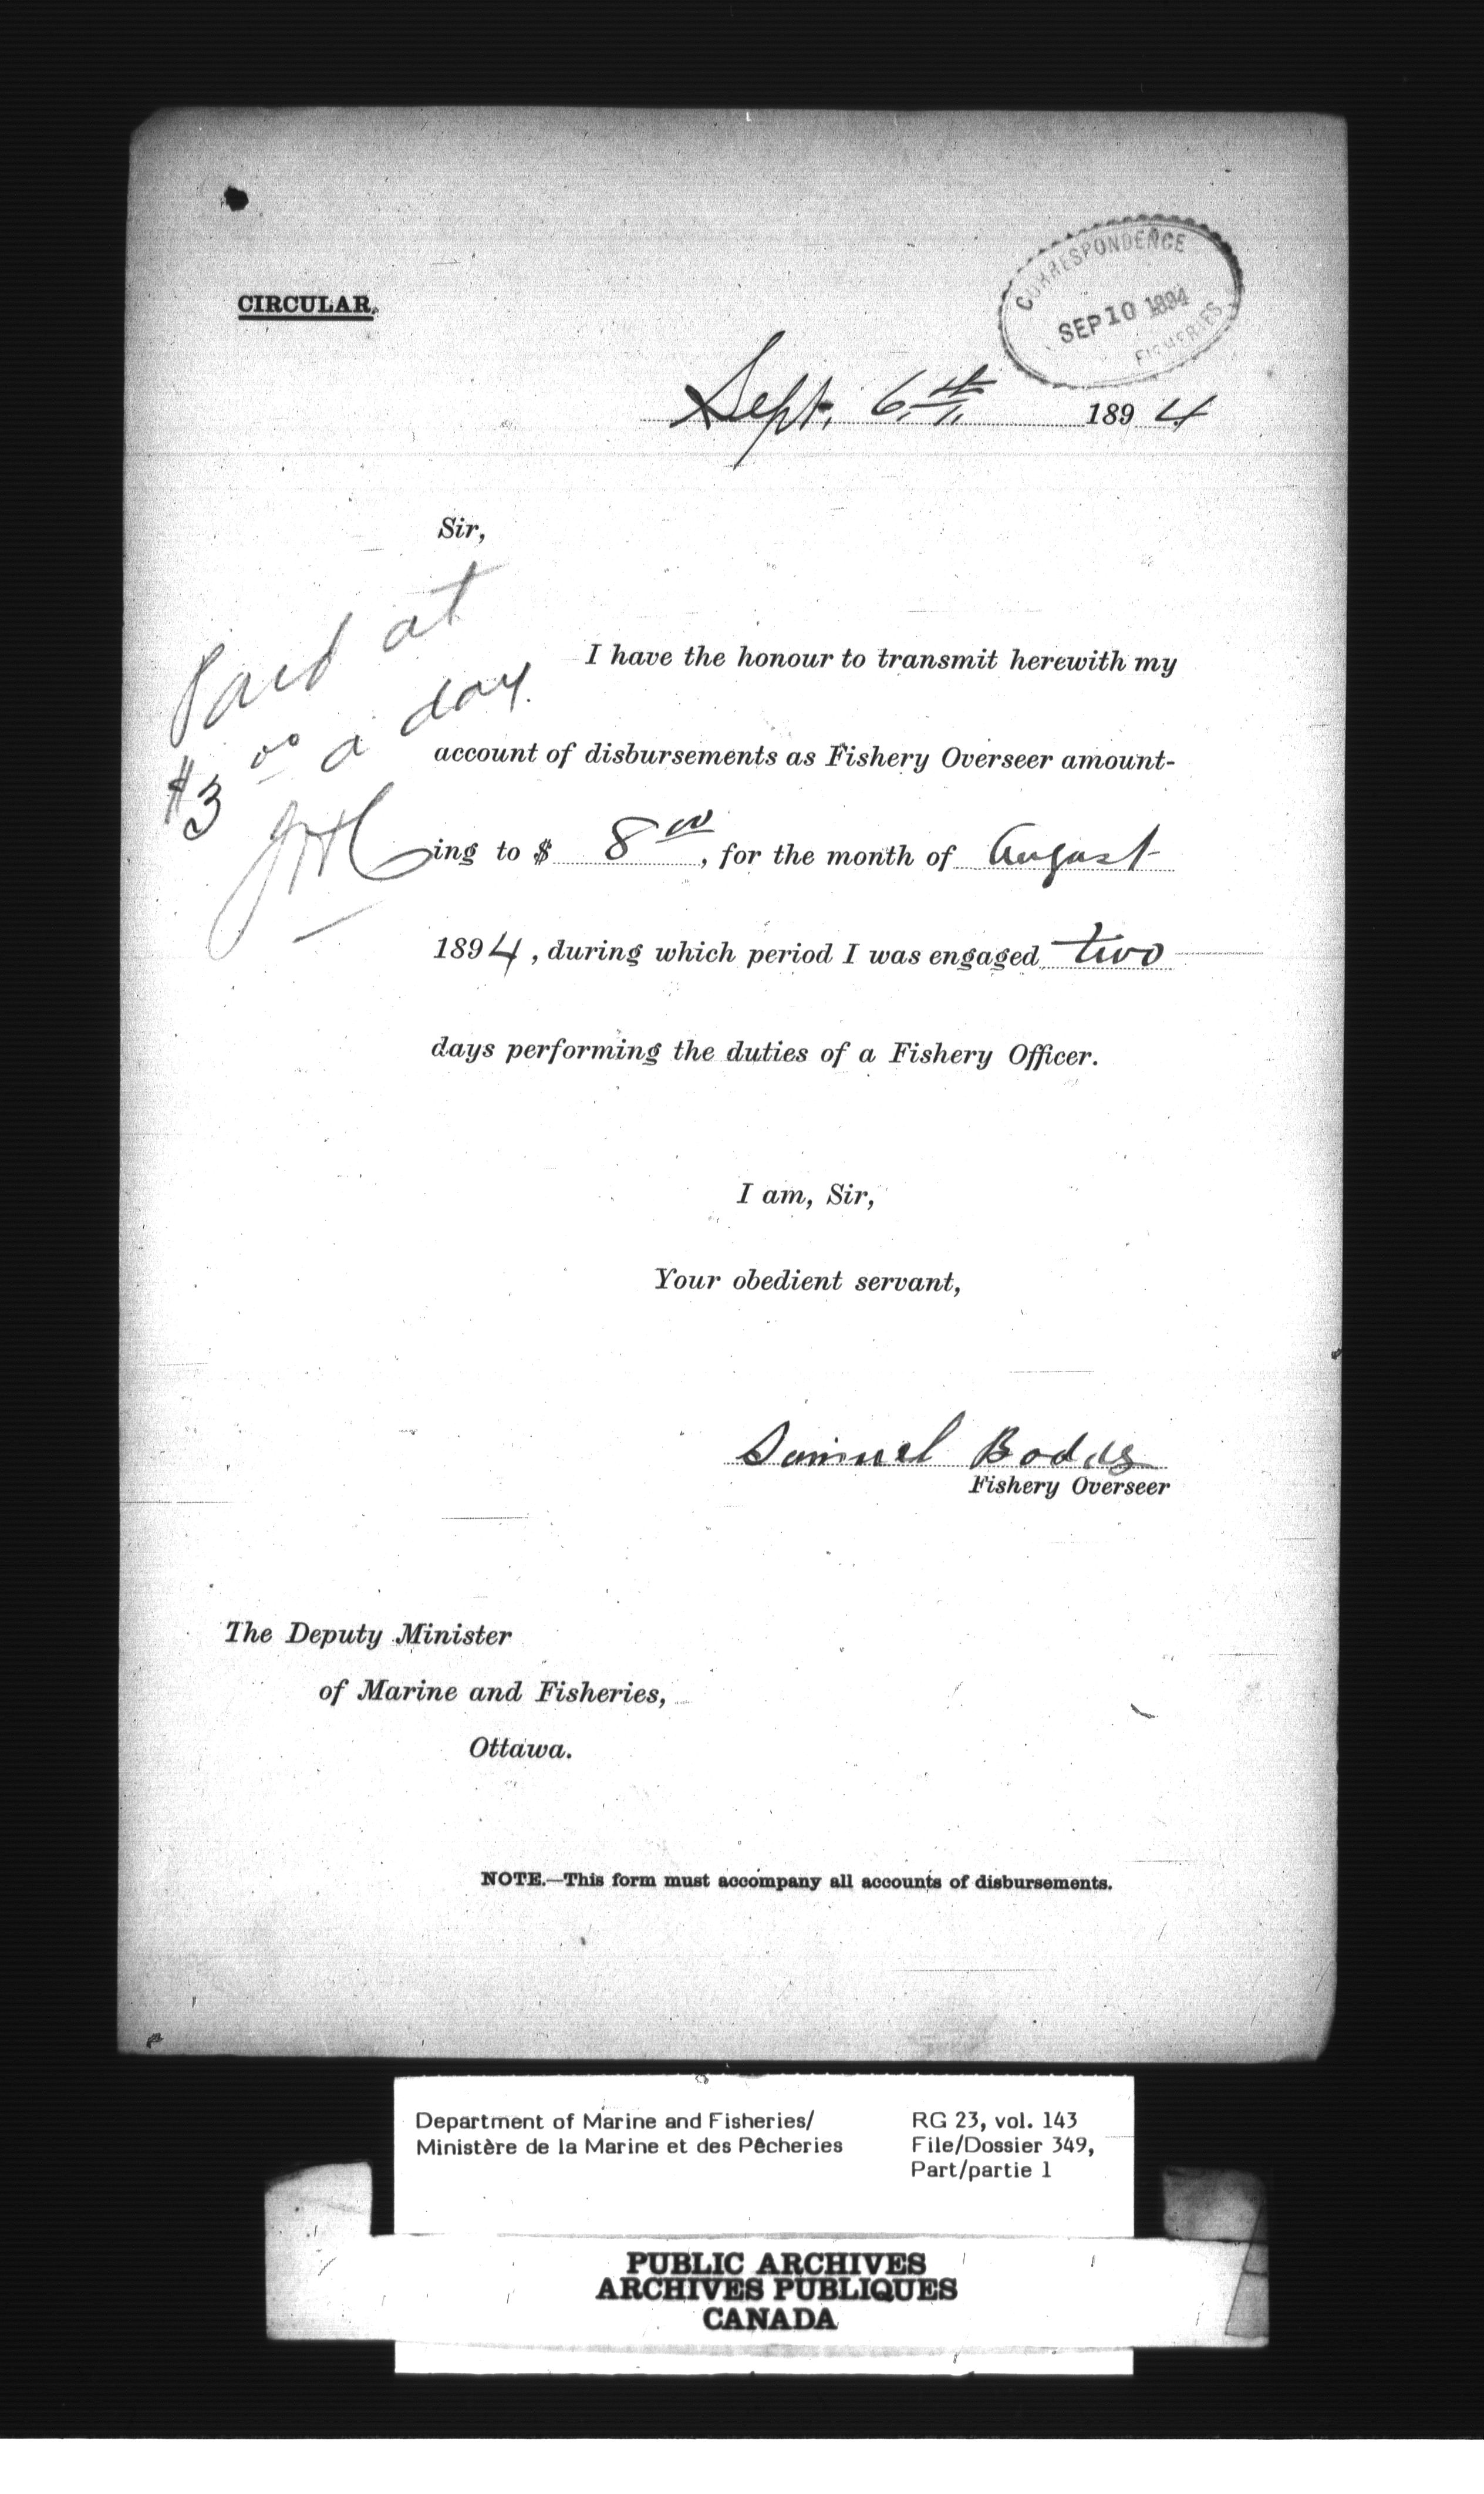 CIRCULAR.
CORRESPONDENCE
SEP 10 1894
FISHERIES
Sept. 6th 1894
Sir,
Paid at
$3 00 a day.
I have the honour to transmit herewith my
account of disbursements as Fishery Overseer amount-
ing to $ 8 00, for the month of August
1894, during which period I was engaged two
days performing the duties of a Fishery Officer.
I am, Sir,
Your obedient servant,
Samuel Bodds
Fishery Overseer
The Deputy Minister
of Marine and Fisheries,
Ottawa.
NOTE.—This form must accompany all accounts of disbursements.
Department of Marine and Fisheries/
Ministère de la Marine et des Pêcheries
RG 23, vol. 143
File/Dossier 349,
Part/partie 1
PUBLIC ARCHIVES
ARCHIVES PUBLIQUES
CANADA